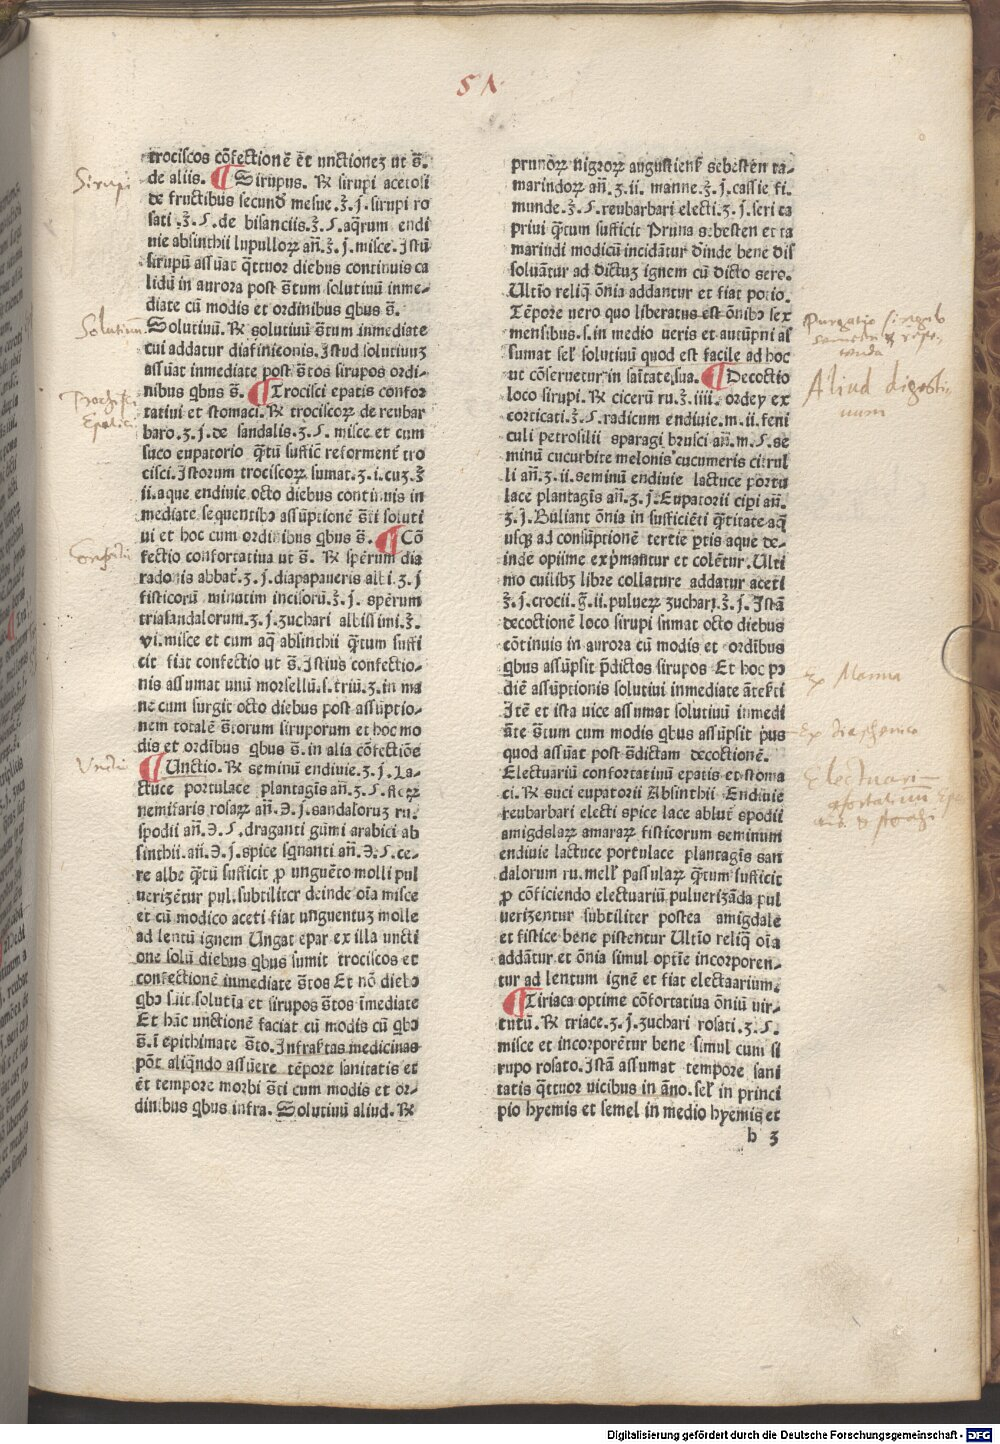 51
trociscos cõfectionẽ et̃ unctioneʒ ut s̃.
de aliis. ¶ Sirupus. ℞ sirupi acetosi
de fructibus secund̃ mesue.ʒ̃.j.sirupi ro
sati.ʒ̃.ſ.de bisanciis.ʒ̃.ſ.aq̃rum endi
uie absinthii lupulloꝝ añ.ʒ̃.j.misce.Istũ
sirupũ assũat q̃ttuor diebus continuis ca
lidũ in aurora post s̃tum solutiuũ inme-
diate cũ modis et ordinibus qbus s̃.
Solutiuũ. ℞ solutiuũ s̃tum inmediate
cui addatur diafinieonis. Istud solutiuuʒ
assũat inmediate post s̃tos sirupos ordi-
nibus qbus s̃. ¶ Trocisci epatis confor
tatiui et stomaci. ℞ trociscoꝝ de reubar
baro.ʒ.j.de sandalis.ʒ.ſ. misce et cum
suco eupatorio q̃tũ suffic̃ reforment̃ tro
cisci. Istorum trociscoꝝ sumat.ʒ.i.cuʒ.ʒ̃
ii.aque endiuie octo diebus continuis in
mediate sequentibꝰ assũptionẽ s̃ti soluti
ui et hoc cum ordinibus qbus s̃. ¶ Cõ
fectio confortatiua ut s̃. ℞ sperum dia
radonis abbat̃.ʒ.j.diapapaueris albi.ʒ.j
fisticorũ minutim incisorũ.ʒ̃.j. sperum
triasandalorum.ʒ.j.zuchari albissimi.ʒ̃.
vi.misce et cum aq̃ absinthii q̃tum suffi
cit fiat confectio ut s̃. Istius confectio-
nis assumat unũ morsellũ.s.triũ.ʒ.in ma
ne cum surgit octo diebus post assũptio-
nem totalẽ s̃torum siruporum et hoc mo
dis et ordĩbus qbus s̃.in alia cõfectiõe
¶ Unctio. ℞ seminũ endiuie.ʒ.j.La-
ctuce portulace plantagĩs añ.ʒ.ſ.florꝝ
nemifaris rosaꝝ añ.℈.j.sandaloruʒ ru.
spodii añ.℈.ſ.draganti gũmi arabici ab
sinthii.añ.℈.j.spice sq̃nanti añ.℈.ſ.ce-
re albe q̃tũ sufficit ꝓ unguẽto molli pul
uerizẽtur pul.subtiliter deinde oĩa misce
et cũ modico aceti fiat unguentuʒ molle
ad lentũ ignem Ungat epar ex illa uncti
one solũ diebus qbus sumit trociscos et
confectionẽ inmediate s̃tos Et nõ diebꝰ
qbꝰ sũit solutĩa et sirupos s̃tos ĩmediate
Et hãc unctionẽ faciat cũ modis cũ qbꝰ
s̃.ĩ epithimate s̃to.Infrãktas medicinas
põt aliqñdo assũere tẽpore sanitatis et
et̃ tempore morbi s̃ti cum modis et or-
dinibus qbus infra. Solutiuũ aliud. ℞
prunoꝝ nigroꝝ augustienk̃ sebesten ta-
marindoꝝ añ.ʒ.ii. manne.ʒ̃.j.cassie fi.
munde.ʒ̃.ſ.reubarbari electi.ʒ.j.seri ca
priui q̃tum sufficit Pruna sebesten et ta
marindi modicũ incidãtur dinde bene dis
soluãtur ad dictuʒ ignem cũ dicto sero.
Ultĩo reliq̃ õnia addantur et fiat potio.
Tẽpore uero quo liberatus est õnibꝰ sex
mensibus.s.in medio ueris et autũpni as
sumat sel̃ solutiuũ quod est facile ad hoc
ut cõseruetur in saĩtate sua. ¶ Decoctio
loco sirupi. ℞ cicerũ ru.ʒ̃.iiii. ordey ex
corticati.ʒ̃.ſ.radicum endiuie.m.ii.feni
culi petrosilii sparagi brusci añ.m.ſ.se
minũ cucurbite melonis cucumeris citrul
li añ.ʒ.ii.seminũ endiuie lactuce portu
lace plantagĩs añ.ʒ.j.Eupatorii cipri añ.
ʒ.j.Buliant õnia in sufficiẽti q̃titate aq̃
usqꝫ ad consũptionẽ tertie ptis aque de-
inde optime exp̃mantur et colẽtur.Ulti
mo cuilibʒ libre collature addatur aceti
ʒ̃.j.crocii.g̃.ii.pulueꝝ zuchari.ʒ̃.j.Istã
decoctionẽ loco sirupi sumat octo diebus
cõtinuis in aurora cũ modis et ordĩbus
qbus assũpsit p̃dictos sirupos Et hoc pꝰ
diẽ assũptionis solutiui inmediate ãtekti
Itẽ et ista uice assumat solutiuũ inmedi
ate s̃tum cum modis qbus assũpsit p̃us
quod assũat post s̃dictam decoctionẽ.
Electuariũ confortatiuũ epatis et stoma
ci. ℞ suci eupatorii Absinthii Endiuie
reubarbari electi spice lace ablut̃ spodii
amigdalaꝝ amaraꝝ fisticorum seminum
endiuie lactuce portulace plantagĩs san
dalorum ru.mell̃ passulaꝝ q̃tum sufficit
ꝓ cõficiendo electuariũ puluerizãda pul
uerizentur subtiliter postea amigdale
et fistice bene pistentur Ultĩo reliq̃ oĩa
addãtur et õnia simul optĩe incorporen-
tur ad lentum ignẽ et fiat electaarium.
¶ Tiriaca optime cõfortatiua õniũ uir-
tutũ. ℞ triace.ʒ.j.zuchari rosati.ʒ.ſ.
misce et incorporẽtur bene simul cum si
rupo rosato. Istã assumat tempore sani
tatis q̃ttuor uicibus in ãno.sel̃ in princi
pio hyemis et semel in medio hyemis et
b 3
Sirupi
Solutiuum
Trochisci
Epatis
Confectio
Unctio
Purgatio singulis
Aliud digesti-
uum
Ex Manna
Ex diaphenico
Electuari-
Digitalisierung gefördert durch die Deutsche Forschungsgemeinschaft - DFG